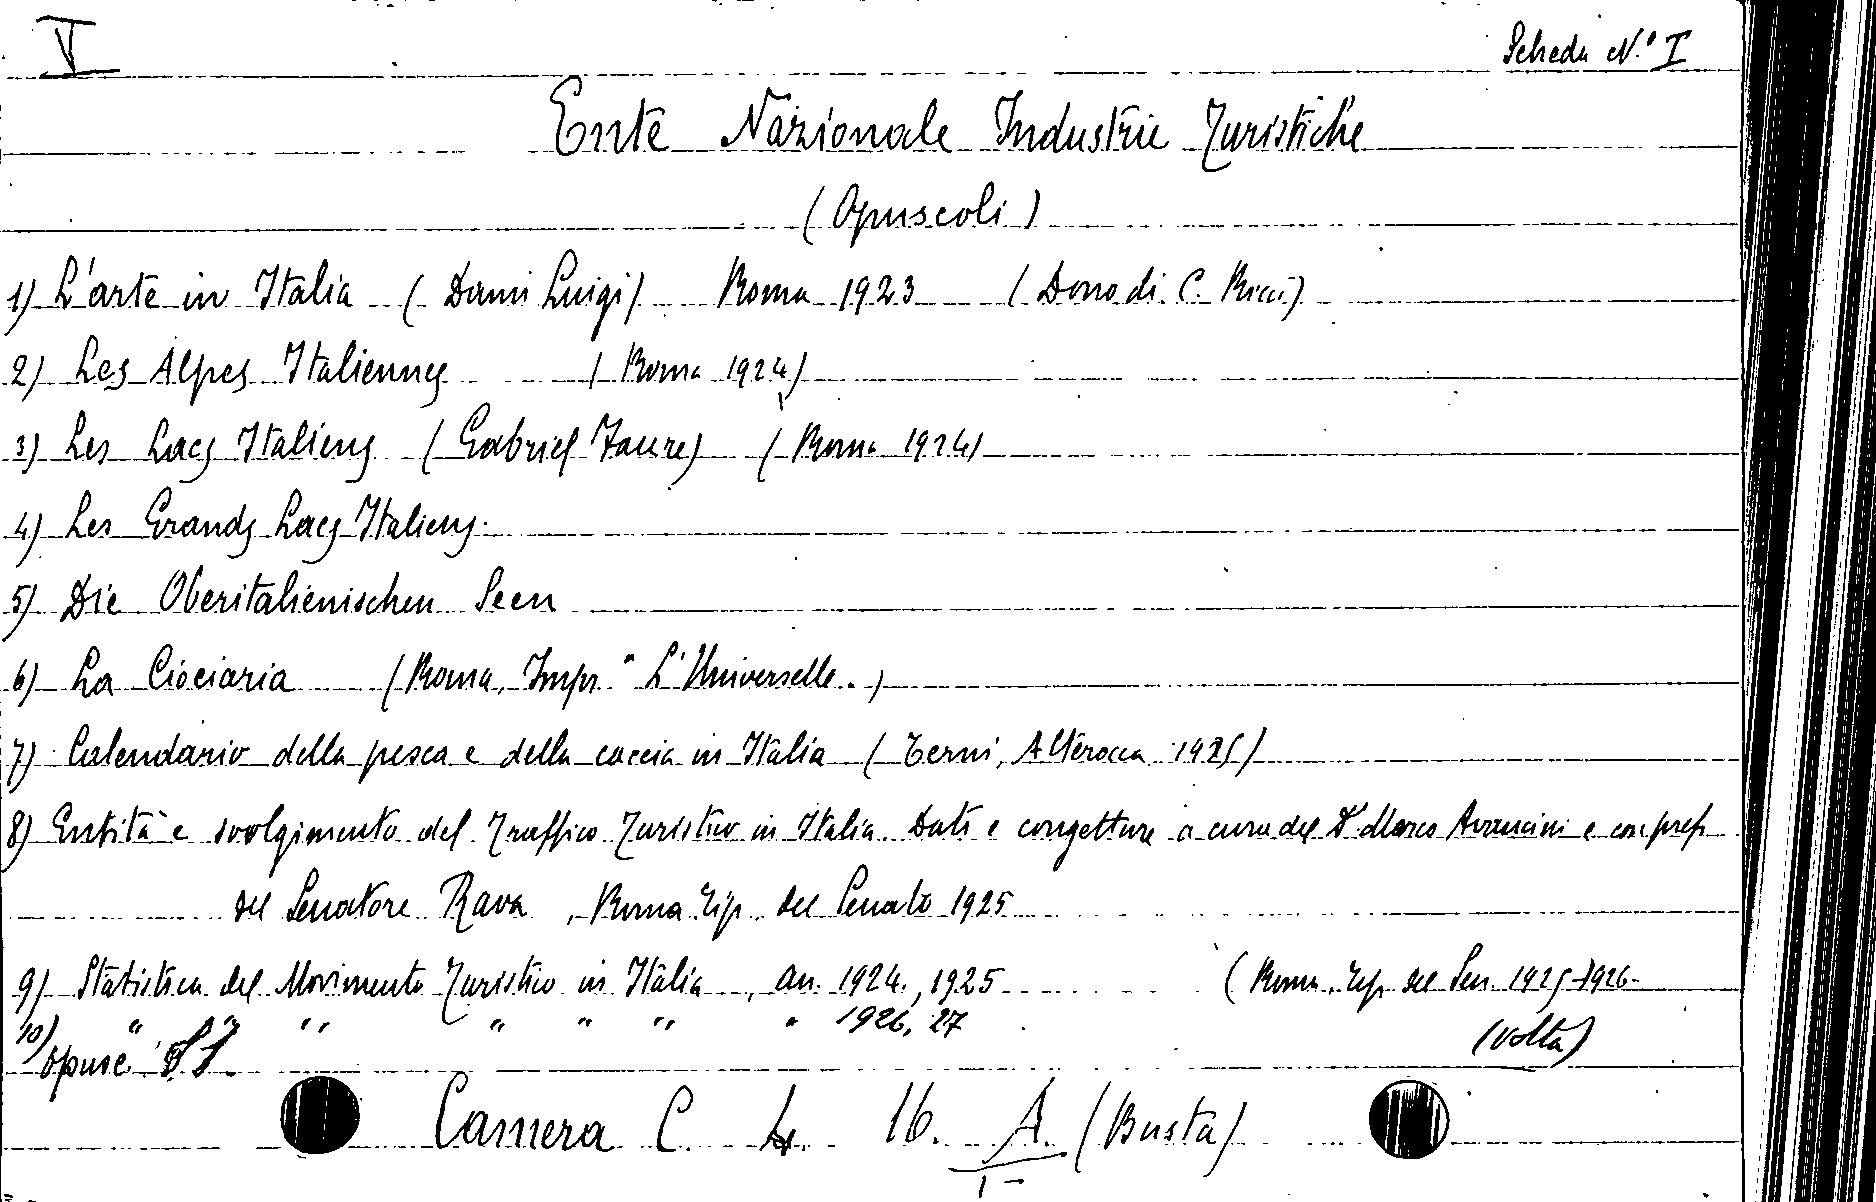 V
Scheda N.º I
Ente Nazionale Industrie Turistiche
(Opuscoli)
1) L'arte in Italia (Dami Luigi) Roma 1923 (Dono di C. Ricci)
2) Les Alpes Italiennes (Roma 1924)
3) Les Lacs Italiens (Gabriel Faure) (Roma 1924)
4) Les Grands Lacs Italiens.
5) Die Oberitalienischen Seen
6) La Ciociaria (Roma, Impr. " L'Universelle.)
7) Calendario della pesca e della caccia in Italia (Terni, Alterocca 1925)
8) Entità e svolgimento del Traffico Turistico in Italia. Dati e congetture a cura del Dr Marco Avancini e con pref.
del Senatore Rava, Roma Tip. del Senato 1925
9) Statistica del Movimento Turistico in Italia, an. 1924., 1925 (Roma. Tip. del Sen. 1925-1926-
10) " " " " " " " 1926, 27
opusc. (volta)
Camera C. L. 16. A. (Busta)
1-